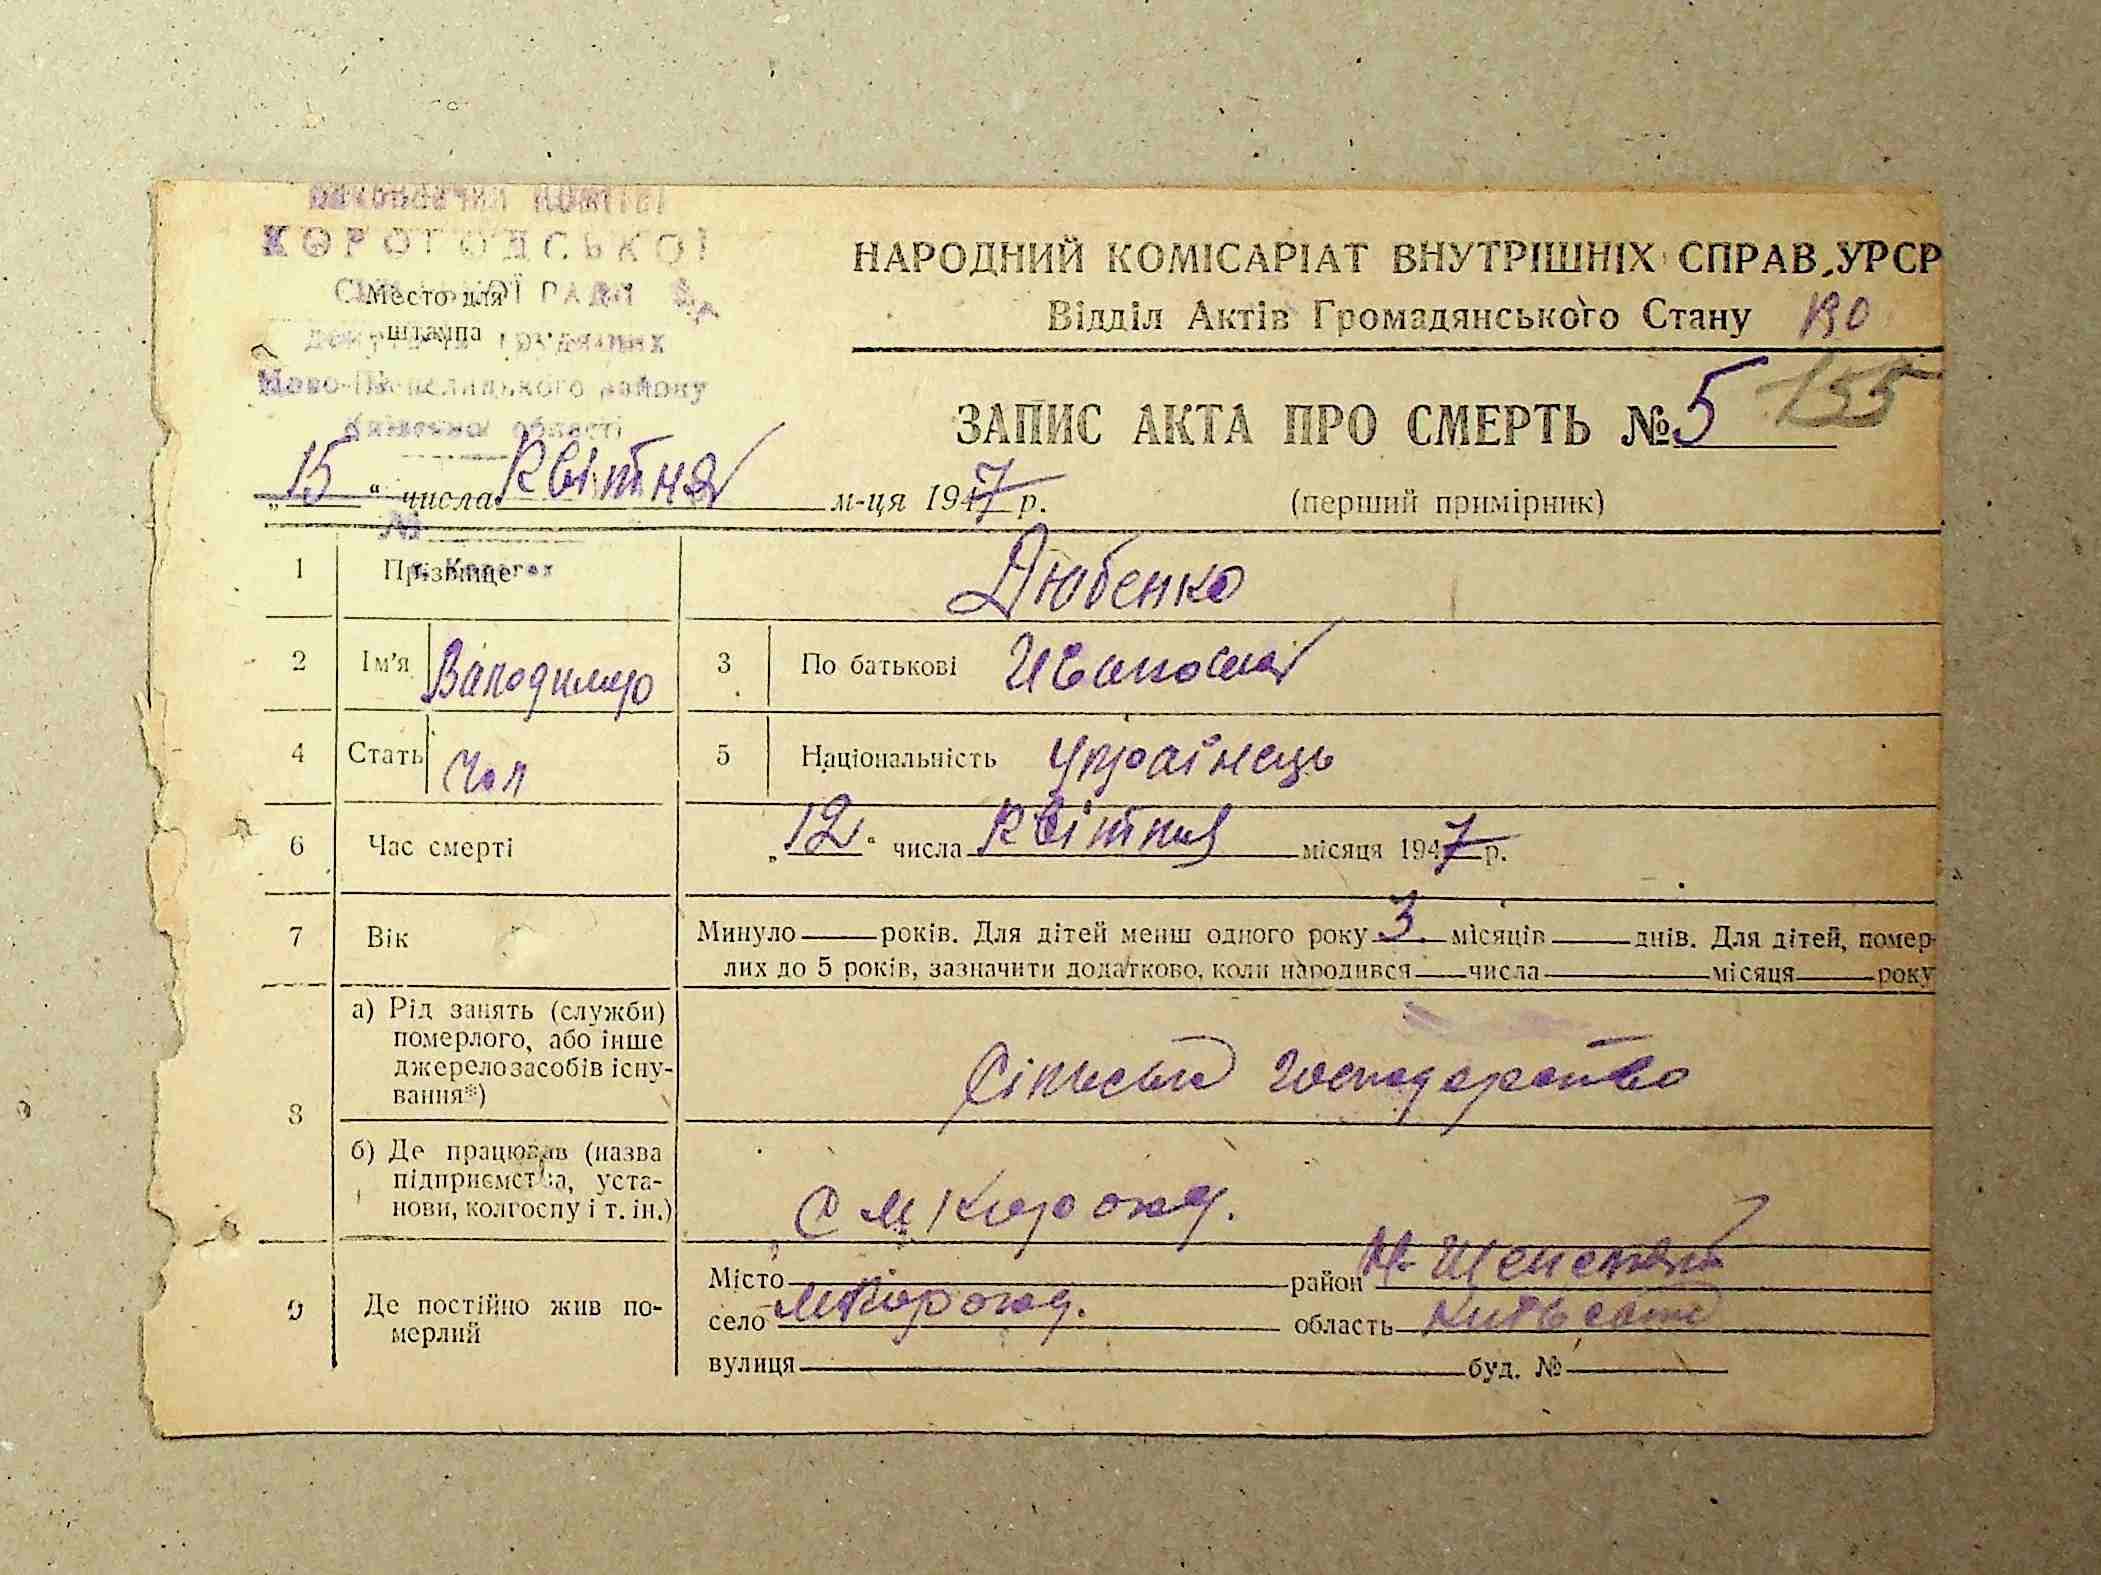 ВИКОНАВЧИЙ КОМІТЕТ
КОРОГОДСЬКОЇ
СІЛЬСЬКОЇ РАДИ
Место для
штампа
депутатів трудящих
Ново-Шепелицького району
Київської області
№
с. Корогод
НАРОДНИЙ КОМІСАРІАТ ВНУТРІШНІХ СПРАВ УРСР
Відділ Актів Громадянського Стану 190
ЗАПИС АКТА ПРО СМЕРТЬ № 5 155
„15“ числа Квітня м-ця 1947 р. (перший примірник)
1 Прізвище Дюбенко
2 Ім'я Володимир 3 По батькові Іванович
4 Стать Чол 5 Національність Українець
6 Час смерті „12“ числа Квітня місяця 1947 р.
7 Вік Минуло років. Для дітей менш одного року 3 місяців днів. Для дітей, помер-
лих до 5 років, зазначити додатково, коли народився числа місяця року
8 а) Рід занять (служби)
померлого, або інше
джерело засобів існу-
вання*) Сільське господарство
б) Де працював (назва
підприємства, уста-
нови, колгоспу і т. ін.) Корогод.
9 Де постійно жив по-
мерлий
Місто район Н-Шепелицький
село Корогод. область Київська
вулиця буд. №